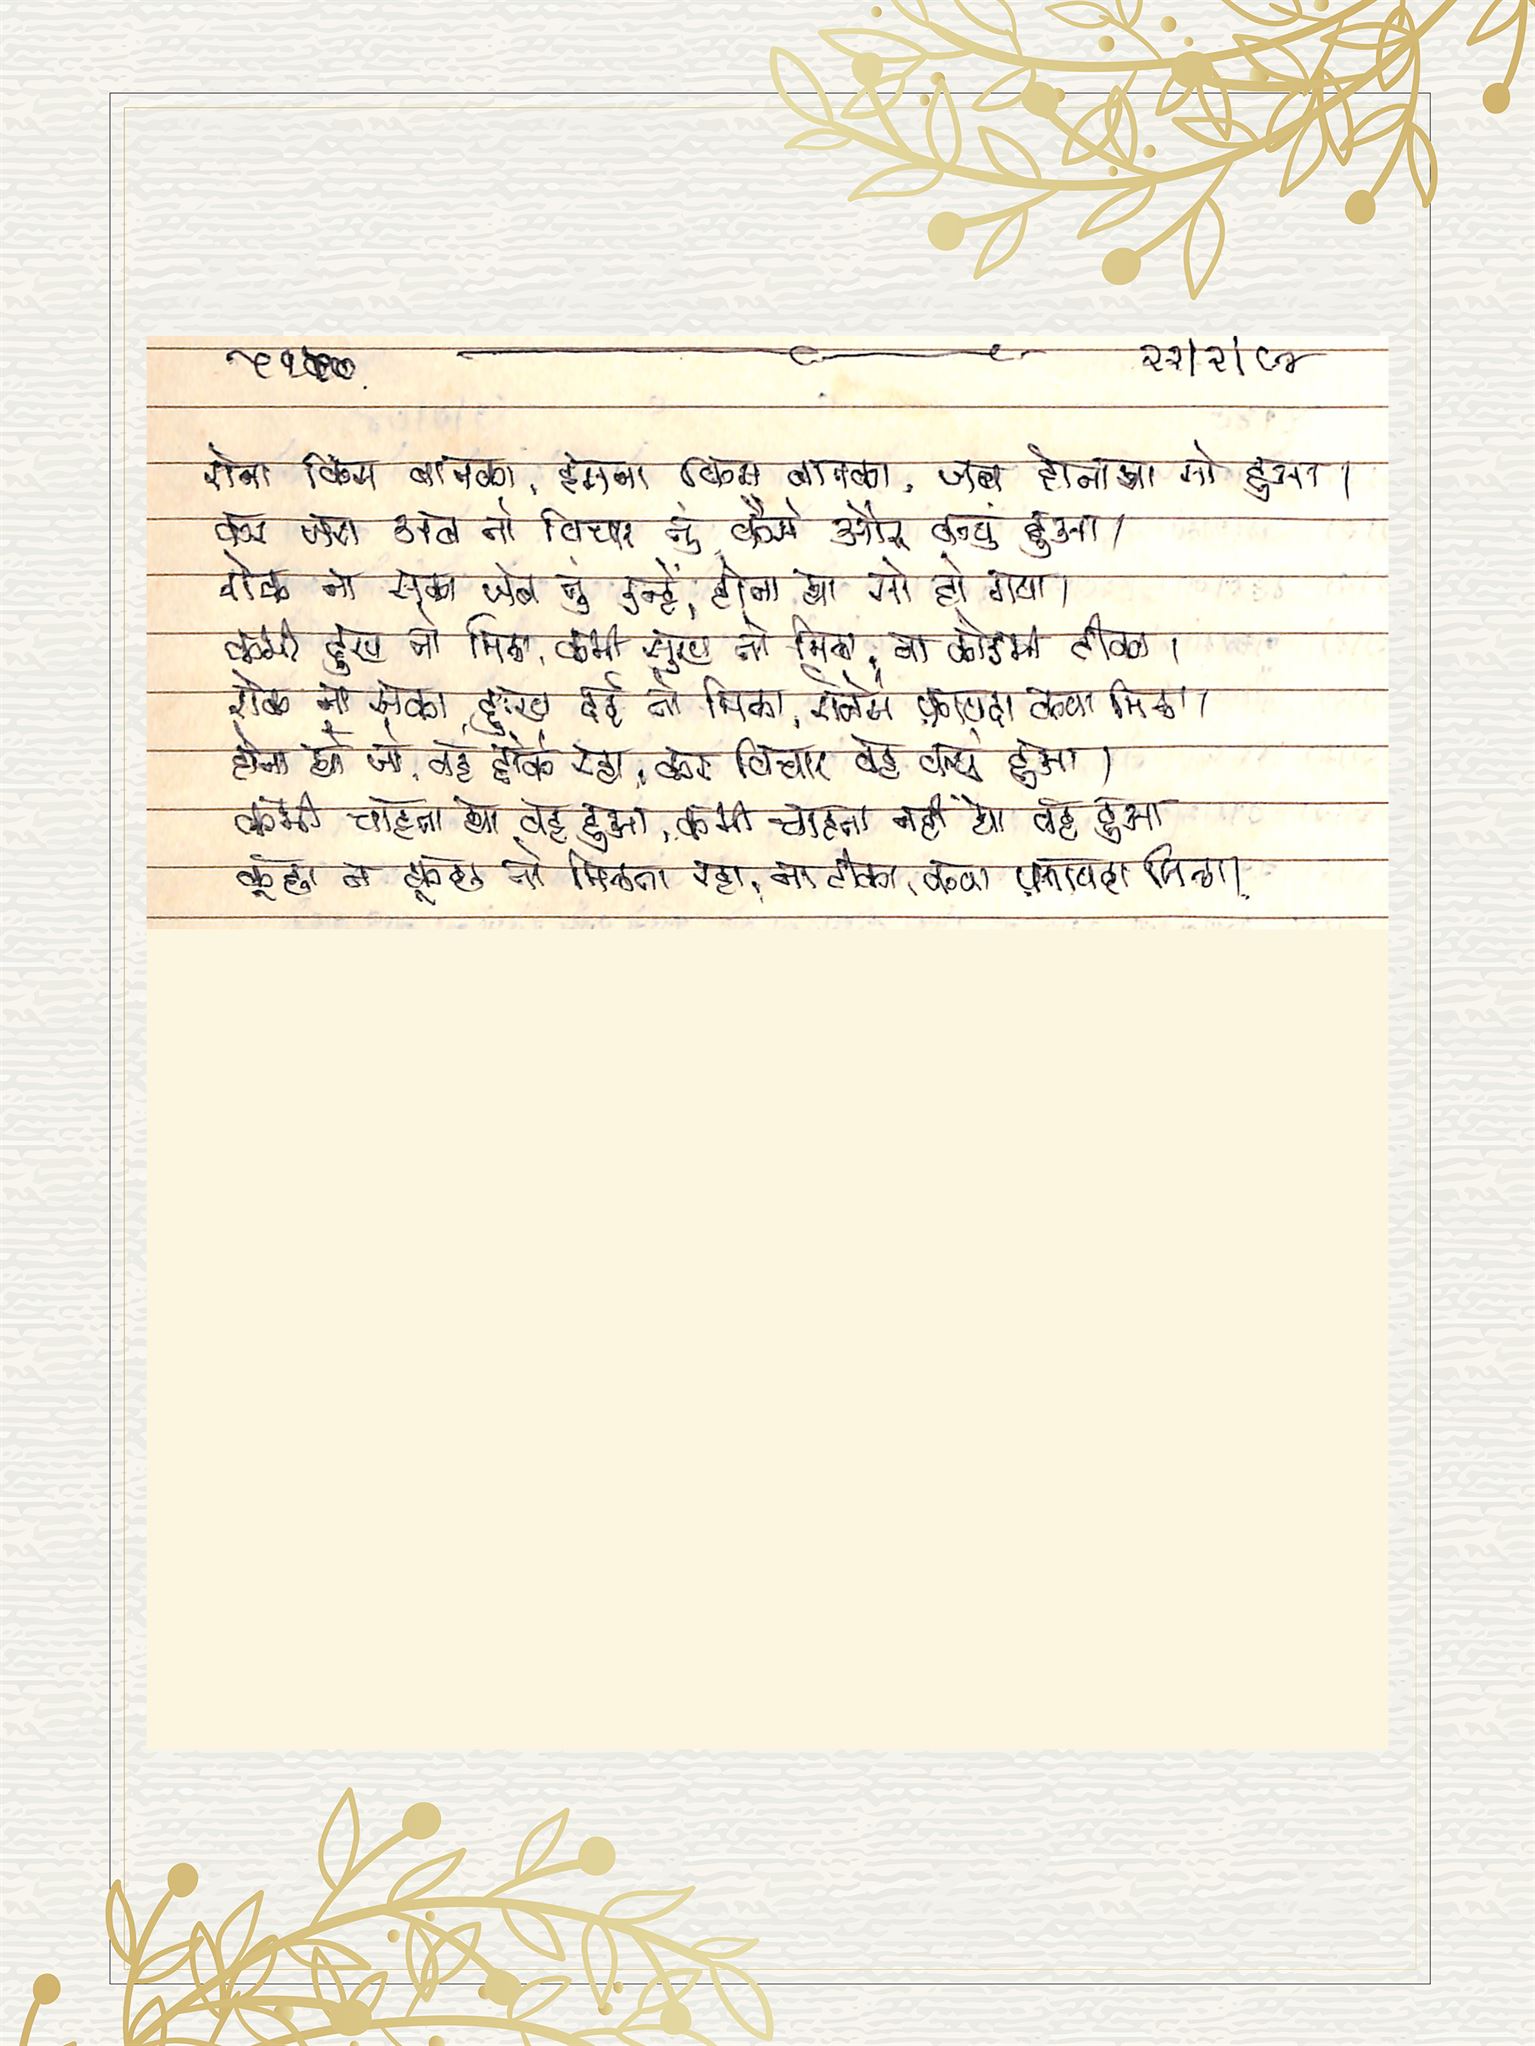 २२/२/८४
रोना किस बातका, हसना किस बातका, जब होनाथा सो हुआ।
कर जरा अब तो विचार तुं, कैसे और क्युं हुआ।
रोक ना सका जब तुं उन्हें, होना था सो हो गया।
कभी दुःख तो मिला, कभी सुख तो मिला, ना कोईभी टीका।
रोक ना सका, दुःख दर्द तो मिला, रोनेसे फ़ायदा क्या मिला।
होना था जो, वह होके रहा, कर विचार वह क्युं हुआ।
कभी चाहता था वह हुआ, कभी चाहता नहीं था वह हुआ
कुछ न कुछ तो मिलता रहा, ना टीका, क्या फ़ायदा मिला।